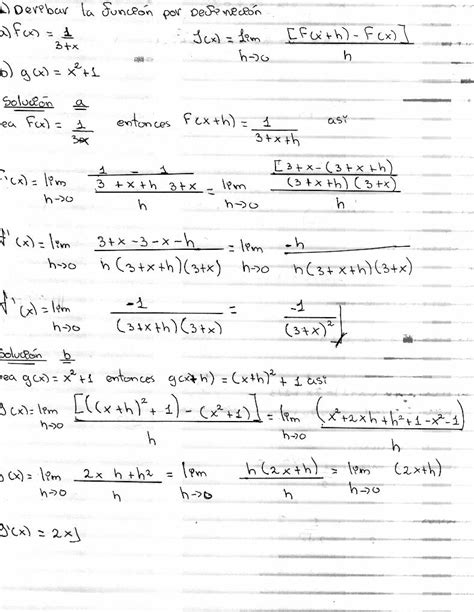 1) Deribar la función por Definición
a) F(x) = 1/(3+x)    f(x) = lim h→0 [F(x+h) - F(x)]/h
b) g(x) = x²+1
Solución a
ea F(x) = 1/(3x) entonces F(x+h) = 1/(3+x+h) asi
F'(x) = lim h→0 (1/(3+x+h) - 1/(3+x))/h = lim h→0 ([3+x-(3+x+h)]/((3+x+h)(3+x)))/h
f'(x) = lim h→0 (3+x-3-x-h)/(h(3+x+h)(3+x)) = lim h→0 -h/(h(3+x+h)(3+x))
f'(x) = lim h→0 -1/((3+x+h)(3+x)) = -1/(3+x)²
Solución b
ea g(x) = x²+1 entonces g(x+h) = (x+h)²+1 asi
g(x) = lim h→0 [((x+h)²+1) - (x²+1)]/h = lim h→0 (x²+2xh+h²+1-x²-1)/h
g(x) = lim h→0 (2xh+h²)/h = lim h→0 h(2x+h)/h = lim h→0 (2x+h)
g'(x) = 2x